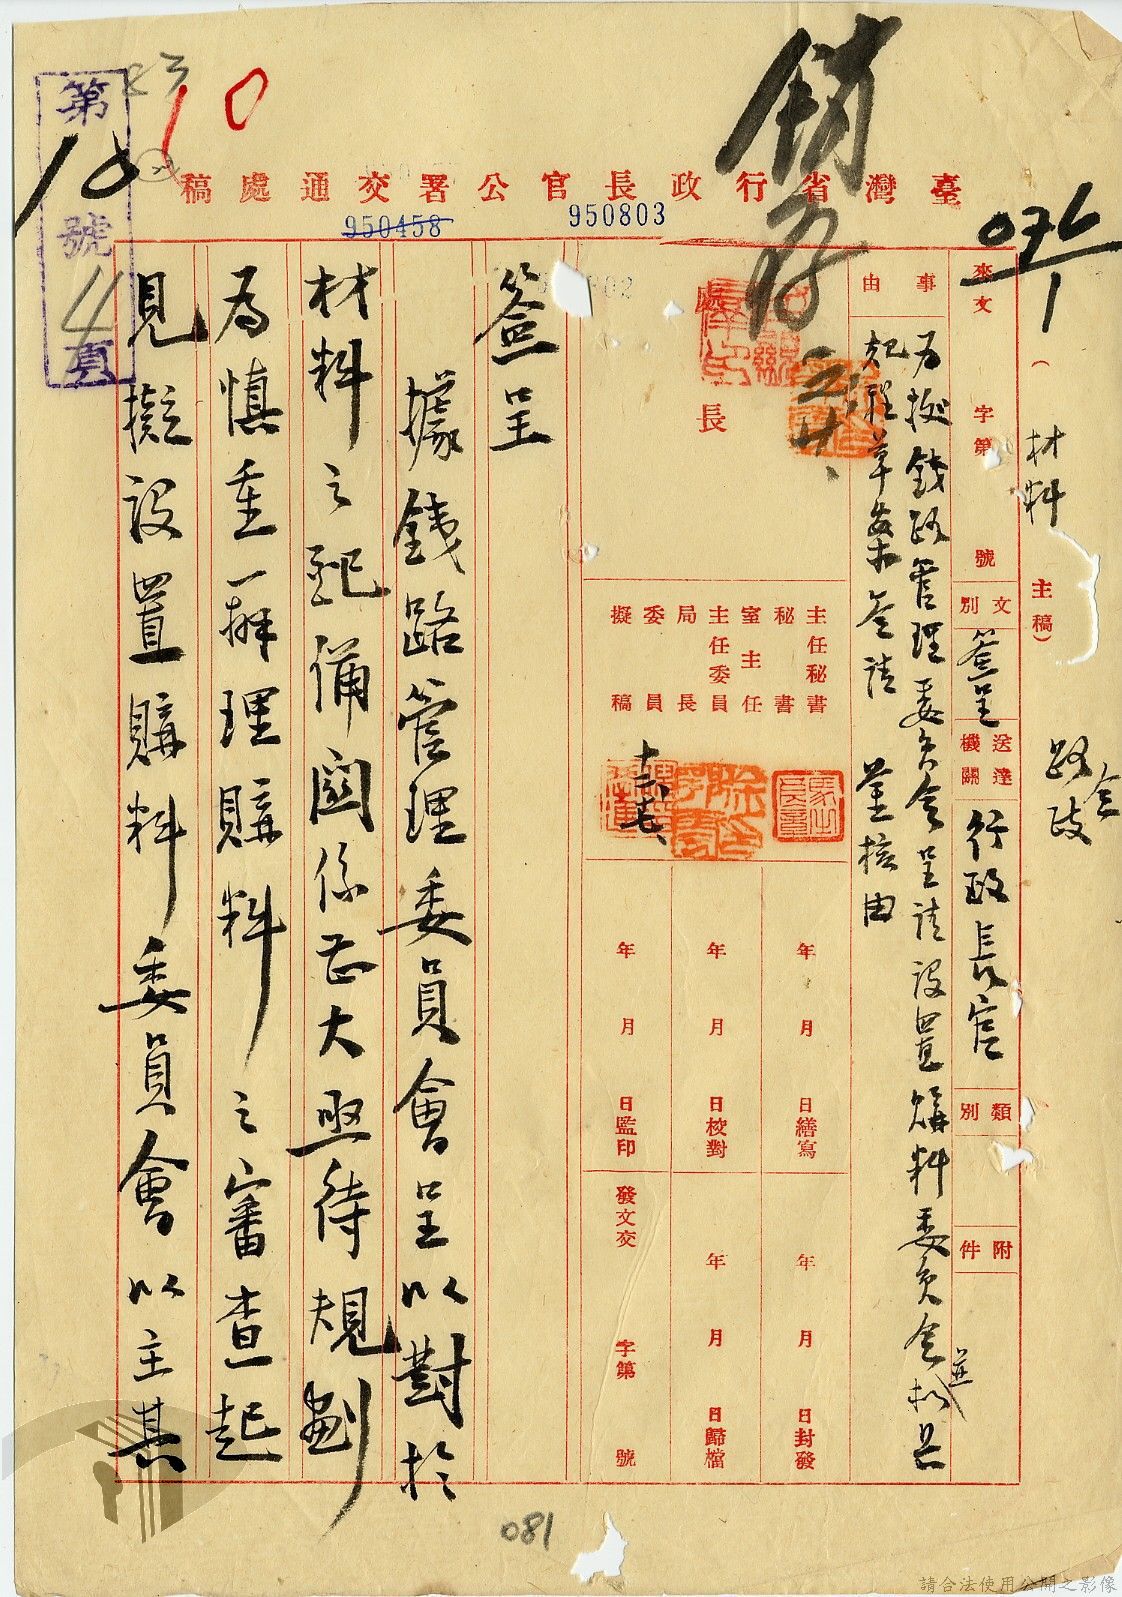 臺灣省行政長官公署交通處稿
950803
950458
10
第 號 頁
銷存
材料
(主稿)
路政
會
來文 字第 號
文別 簽呈
送達機關 行政長官
類別
附件
事由
為據鐵路管理委員會呈請設置購料委員會並擬具
起程草案簽請 鑒核由
處長
主任秘書
秘書
室主任
主任委員
局長
委員
擬稿
年 月 日繕寫
年 月 日校對
年 月 日監印
年 月 日封發
年 月 日歸檔
發文交 字第 號
簽呈
據鐵路管理委員會呈以對於
材料之配備關係甚大亟待規劃
為慎重辦理購料之審查起
見擬設置購料委員會以主其
081
請合法使用公開之影像